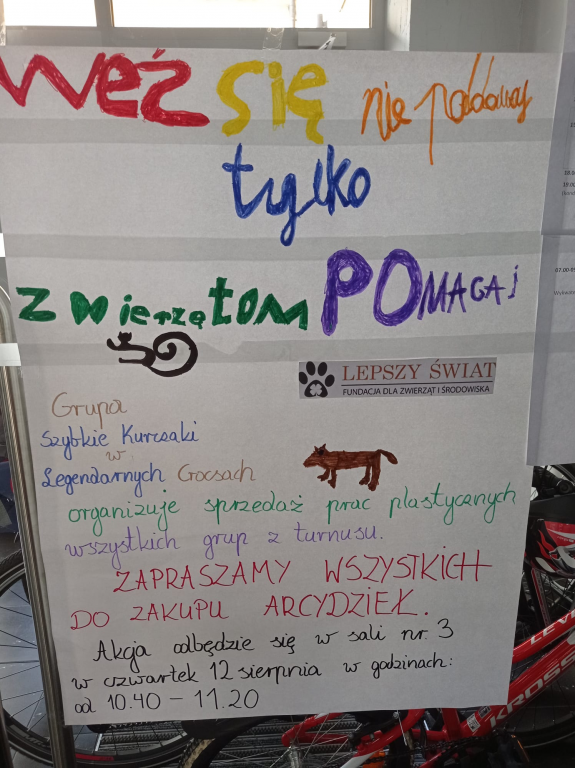 Weź się nie poddawaj
tylko
zwierzętom POMAGAJ
LEPSZY ŚWIAT
FUNDACJA DLA ZWIERZĄT I ŚRODOWISKA
Grupa
Szybkie Kurczaki
w
Legendarnych Crocsach
organizuje sprzedaż prac plastycznych
wszystkich grup z turnusu.
ZAPRASZAMY WSZYSTKICH
DO ZAKUPU ARCYDZIEŁ.
Akcja odbędzie się w sali nr. 3
w czwartek 12 sierpnia w godzinach:
od 10.40 – 11.20
KROSS